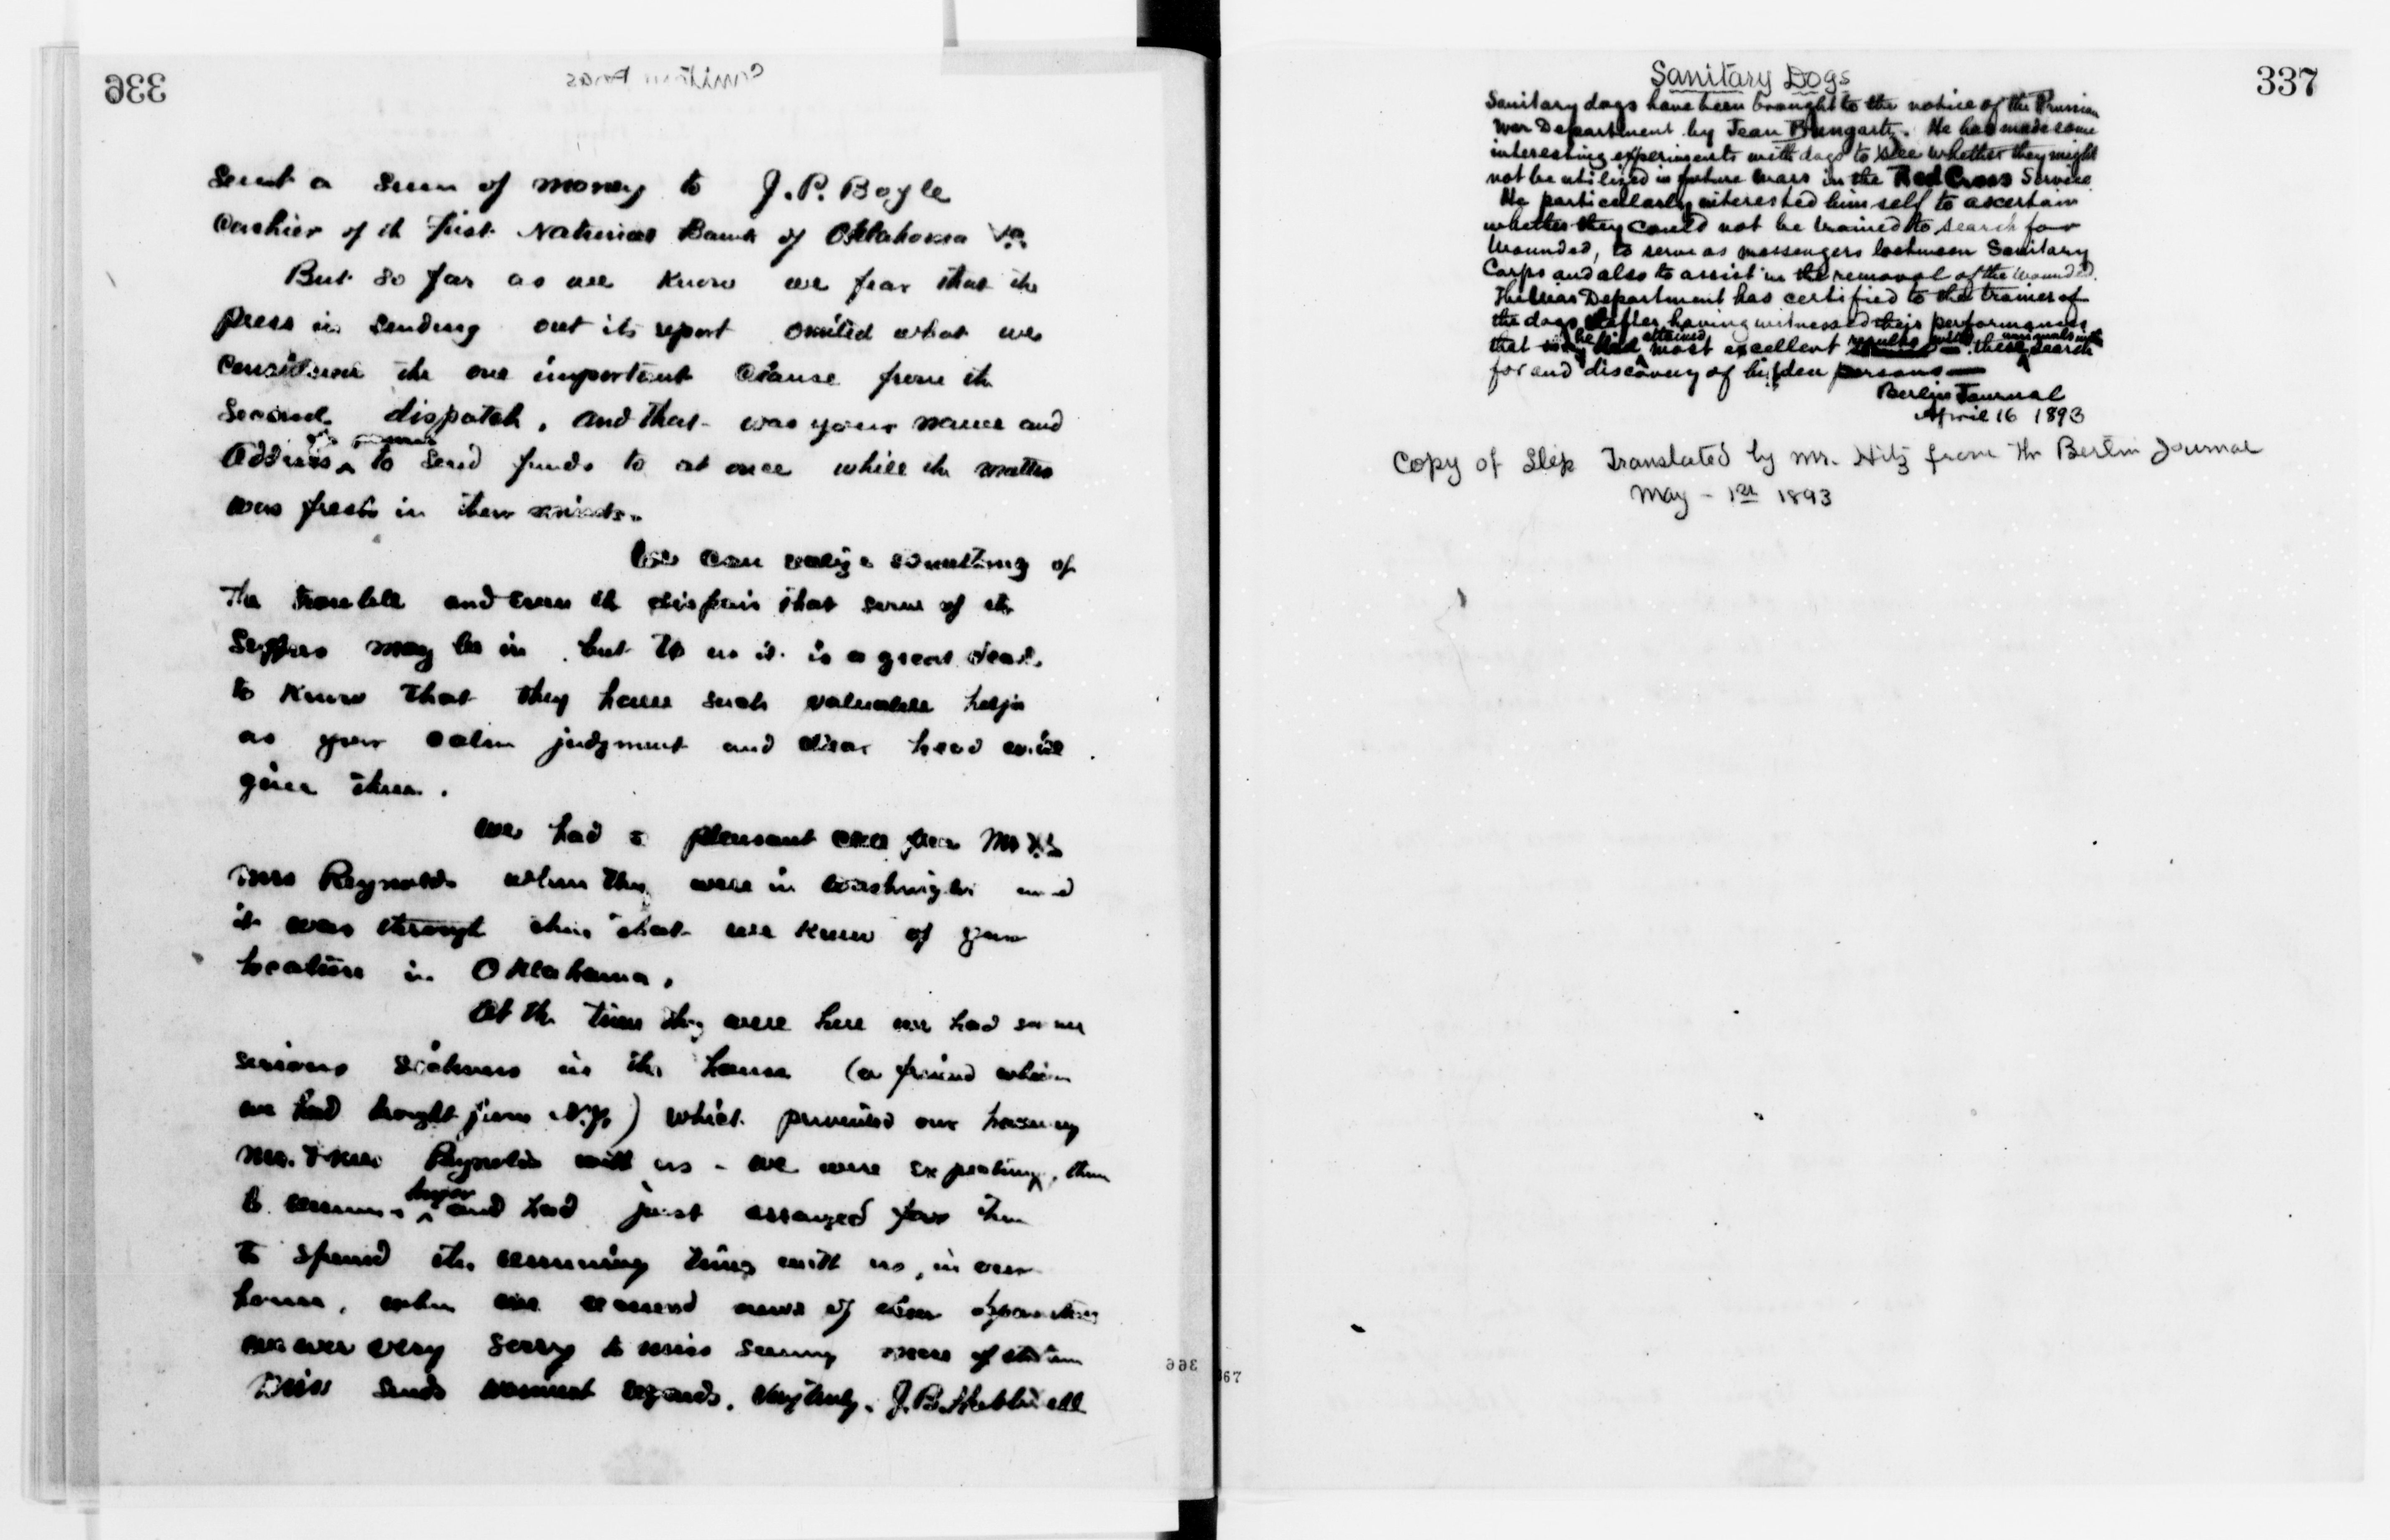 336
sent a sum of money to J. P. Boyle
Cashier of the First National Bank of Oklahoma
But so far as we know we fear that the
press in sending out its report omitted what we
considered the one important clause from the
second dispatch, and that was your name and
address to send funds to at once while the matter
was fresh in their minds.
We can realize something of
the trouble and even the dispair that some of the
may be in, but to us it is a great deal
to know that they have such valuable help
as your calm judgment and clear head will
give them.
We had a pleasant call from Mr &
Mrs Reynolds when they were in Washington and
it was through them that we knew of your
location in Oklahoma.
At the time they were here we had some
serious sickness in the house (a friend whom
we had brought from N.Y.) which prevented our having
Mr. & Mrs Reynolds with us - we were expecting them
to remain longer and had just arranged for them
to spend the remaining time with us, in our
house, when we received news of their departure
we were very sorry to miss seeing more of them
Miss sends warmest regards. Very truly, J. B. Hubbell
337
Sanitary Dogs
Sanitary dogs have been brought to the notice of the Prussian
War Department by Jean Bungartz. He has made some
interesting experiments with dogs to see whether they might
not be utilized in future wars in the Red Cross Service
He particularly interested himself to ascertain
whether they could not be trained to search for
wounded, to serve as messengers between Sanitary
Corps and also to assist in the removal of the wounded.
The War Department has certified to the trainer of
the dogs after having witnessed their performances
that he had attained most excellent results with these animals in the search
for and discovery of hidden persons —
Berlin Journal
April 16 1893
Copy of Slip Translated by Mr. Hitz from the Berlin Journal
May - 1st 1893
366
67